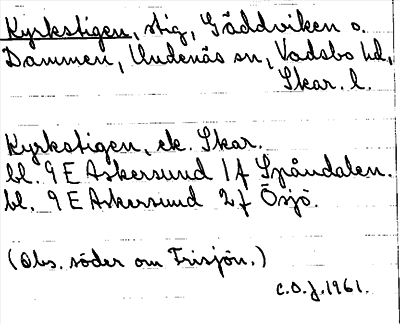 Kyrkstigen, stig, Gäddviken o.
Dammen, Undenäs sn, Vadsbo hd,
Skar. l.
Kyrkstigen, ek. Skar.
bl. 9 E Askersund 1 f Spåndalen.
bl. 9 E Askersund 2 f Ösjö.
(Obs. söder om Frisjön.)
C.O.J. 1961.